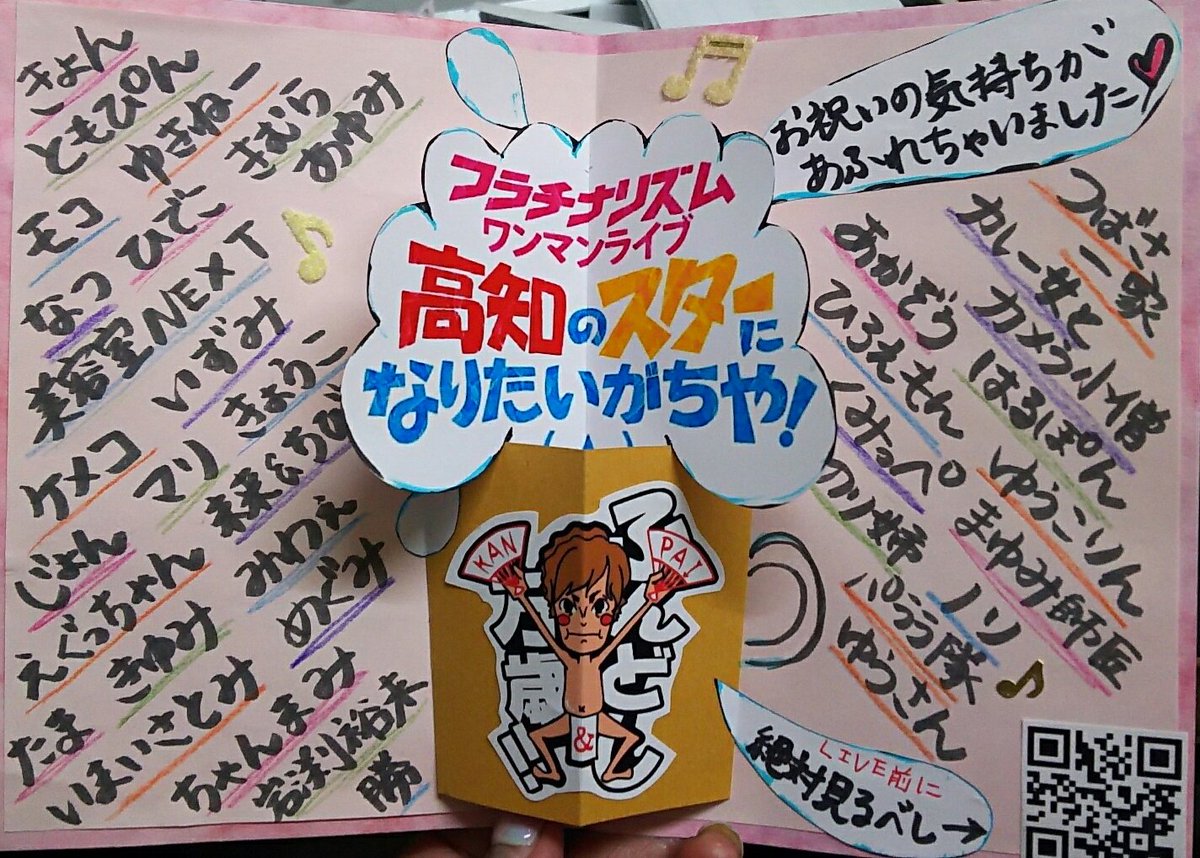 きょん
ともぴん
ゆきねー
きむら
あゆみ
モコ
ひでこ
なつ
美容室NEXT
いずみ
きょうこ
ケメコ
マリ
未来&ちび
じょん
みわつえ
えぐっちゃん
めぐみ
きゆみ
たま
いまいさとみ
ちゃんまみ
岩渕裕未
勝
フラチナリズム
ワンマンライブ
高知のスターに
なりたいがちや!
KAN
PAI
&
歳!!
お祝いの気持ちが
あふれちゃいました
つばさ
二家
カレー女と
カメラ小僧
あかぞう
はるぽん
ひろえもん
ゆうこりん
くみっぺ
まゆみ師匠
のり姉
ノリ
パララ隊
ゆうさん
LIVE前に
絶対見るべし→